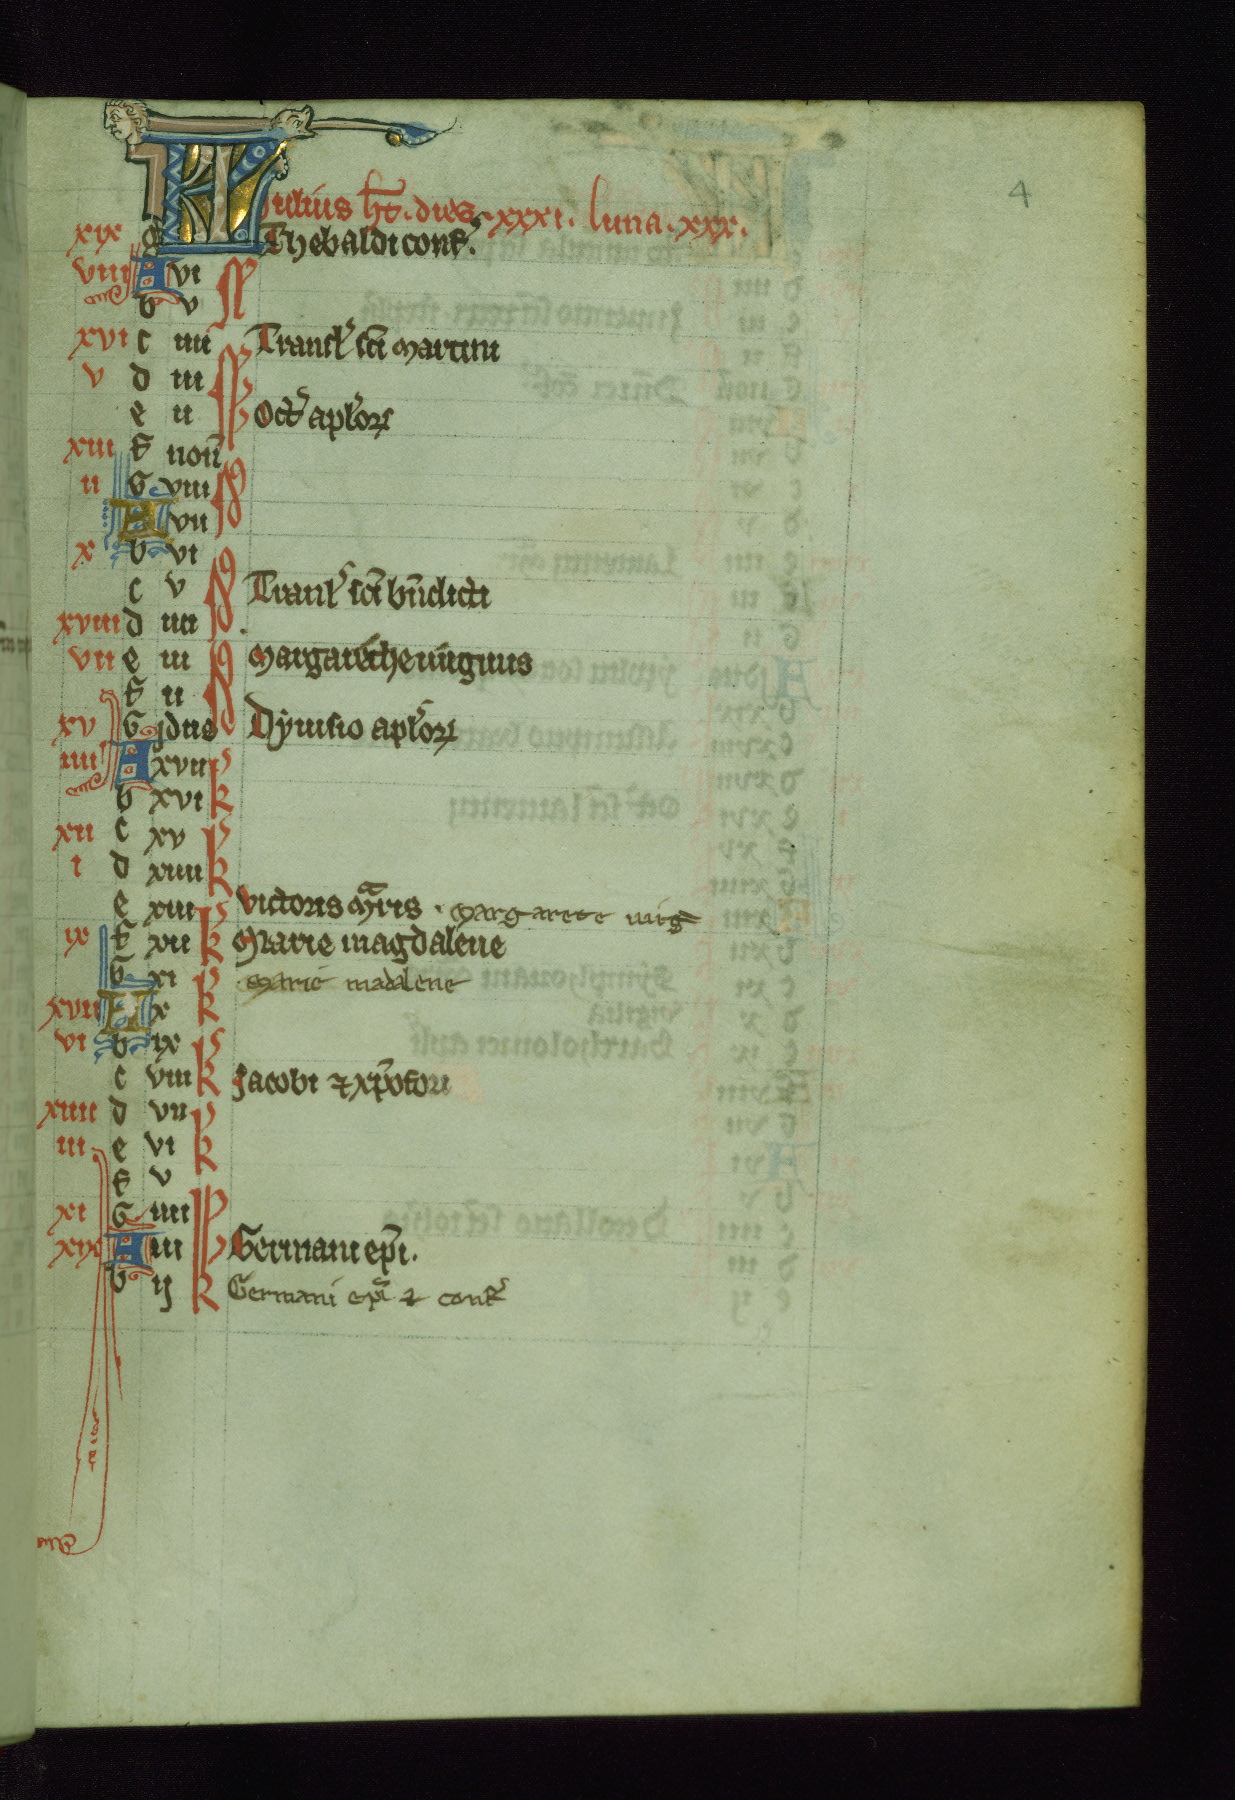 4
KL Iulius ht̄. dies. xxxi. luna. xxx.
xix g Thebaldi conf.
viii A vi N
b v
xvi c iiii Transl' sci martini
v d iii
e ii Oct' aplorꝝ
xiii f non̄
ii G viii Id
A vii
x b vi
c v Tranl' sci bn̄dicti
xviii d iiii
vii e iii Margarethe uirginis
f ii
xv G idus Dyuisio aplorꝝ
iiii A xvii K
b xvi
xii c xv K
i d xiiii
e xiii K Victoris mr̄is . Margarete uirg
ix f xii Marie magdalene
G xi K Marie madalene
xvii A x
vi b ix K
c viii Jacobi ⁊ xpofori
xiiii d vii K
iii e vi
f v
xi G iiii K
xix A iii Germani epi.
b ij Germani epi ⁊ conf